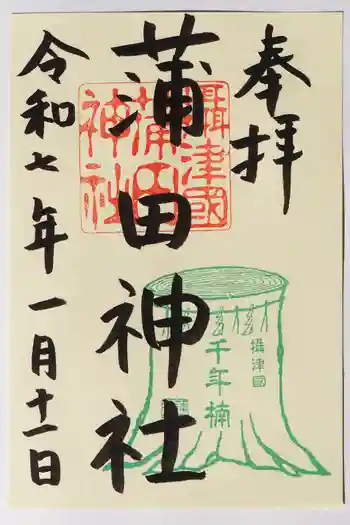 奉拝
攝津國
蒲田
神社
蒲田神社
攝津國
千年楠
令和七年一月十一日